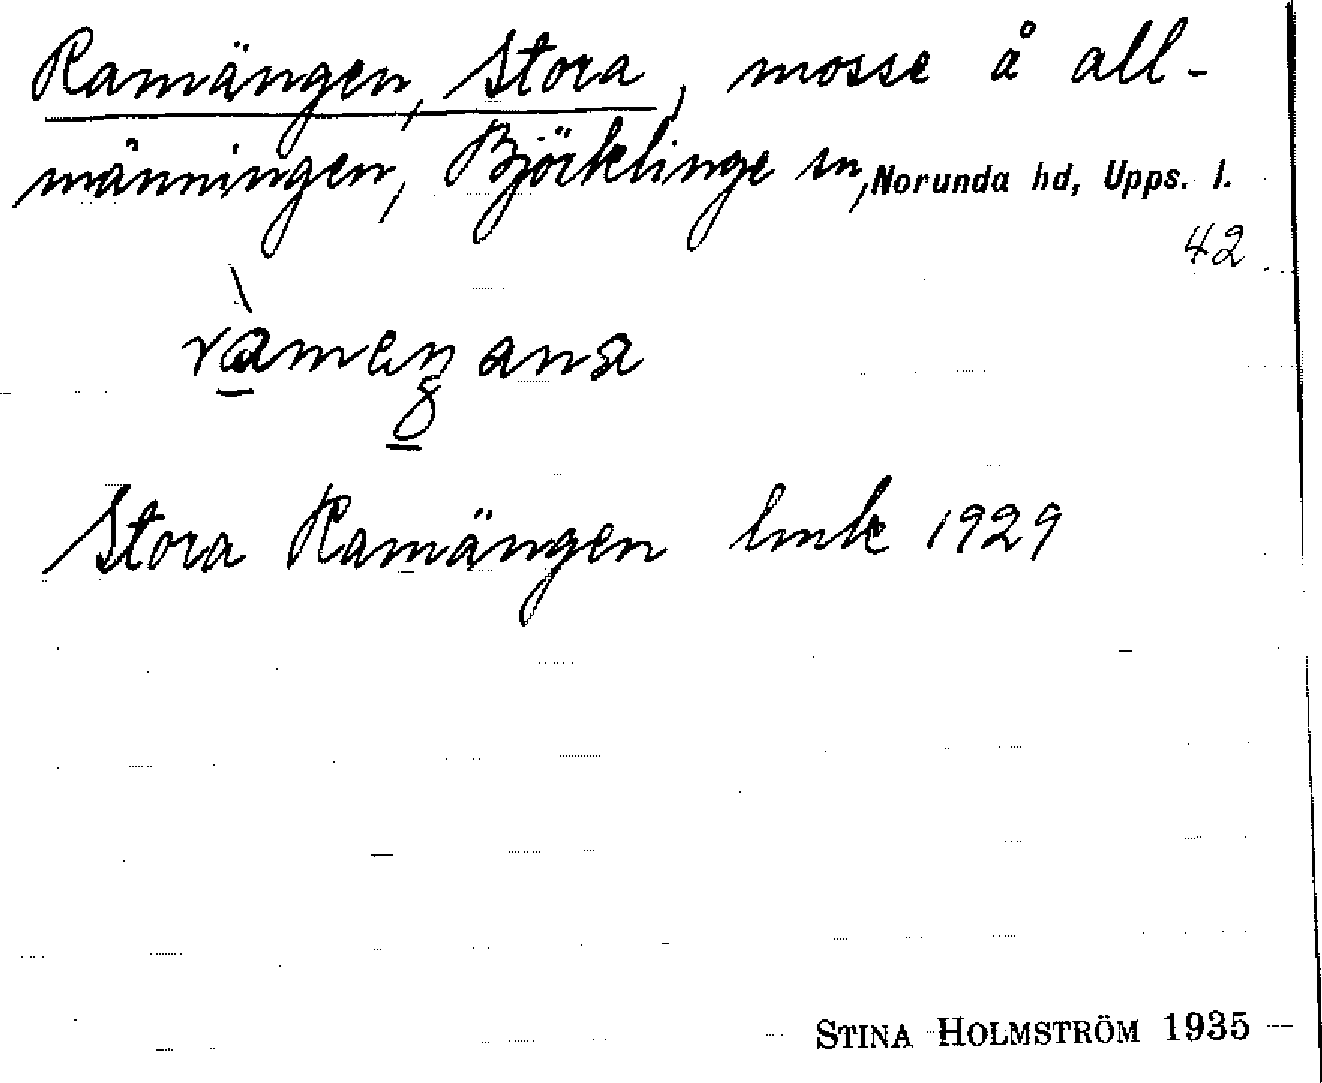 Ramängen, Stora, mosse å all-
männingen, Björklinge sn, Norunda hd, Upps. l.
42
Stora Ramängen lmk 1929
STINA HOLMSTRÖM 1935